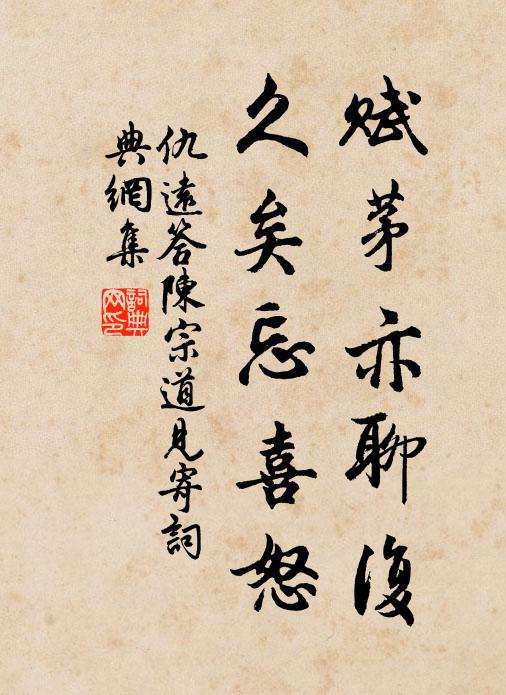 赋茅亦聊復
久矣忘喜怒
仇遠答陳宗道見寄詞
典網集
詞典網印